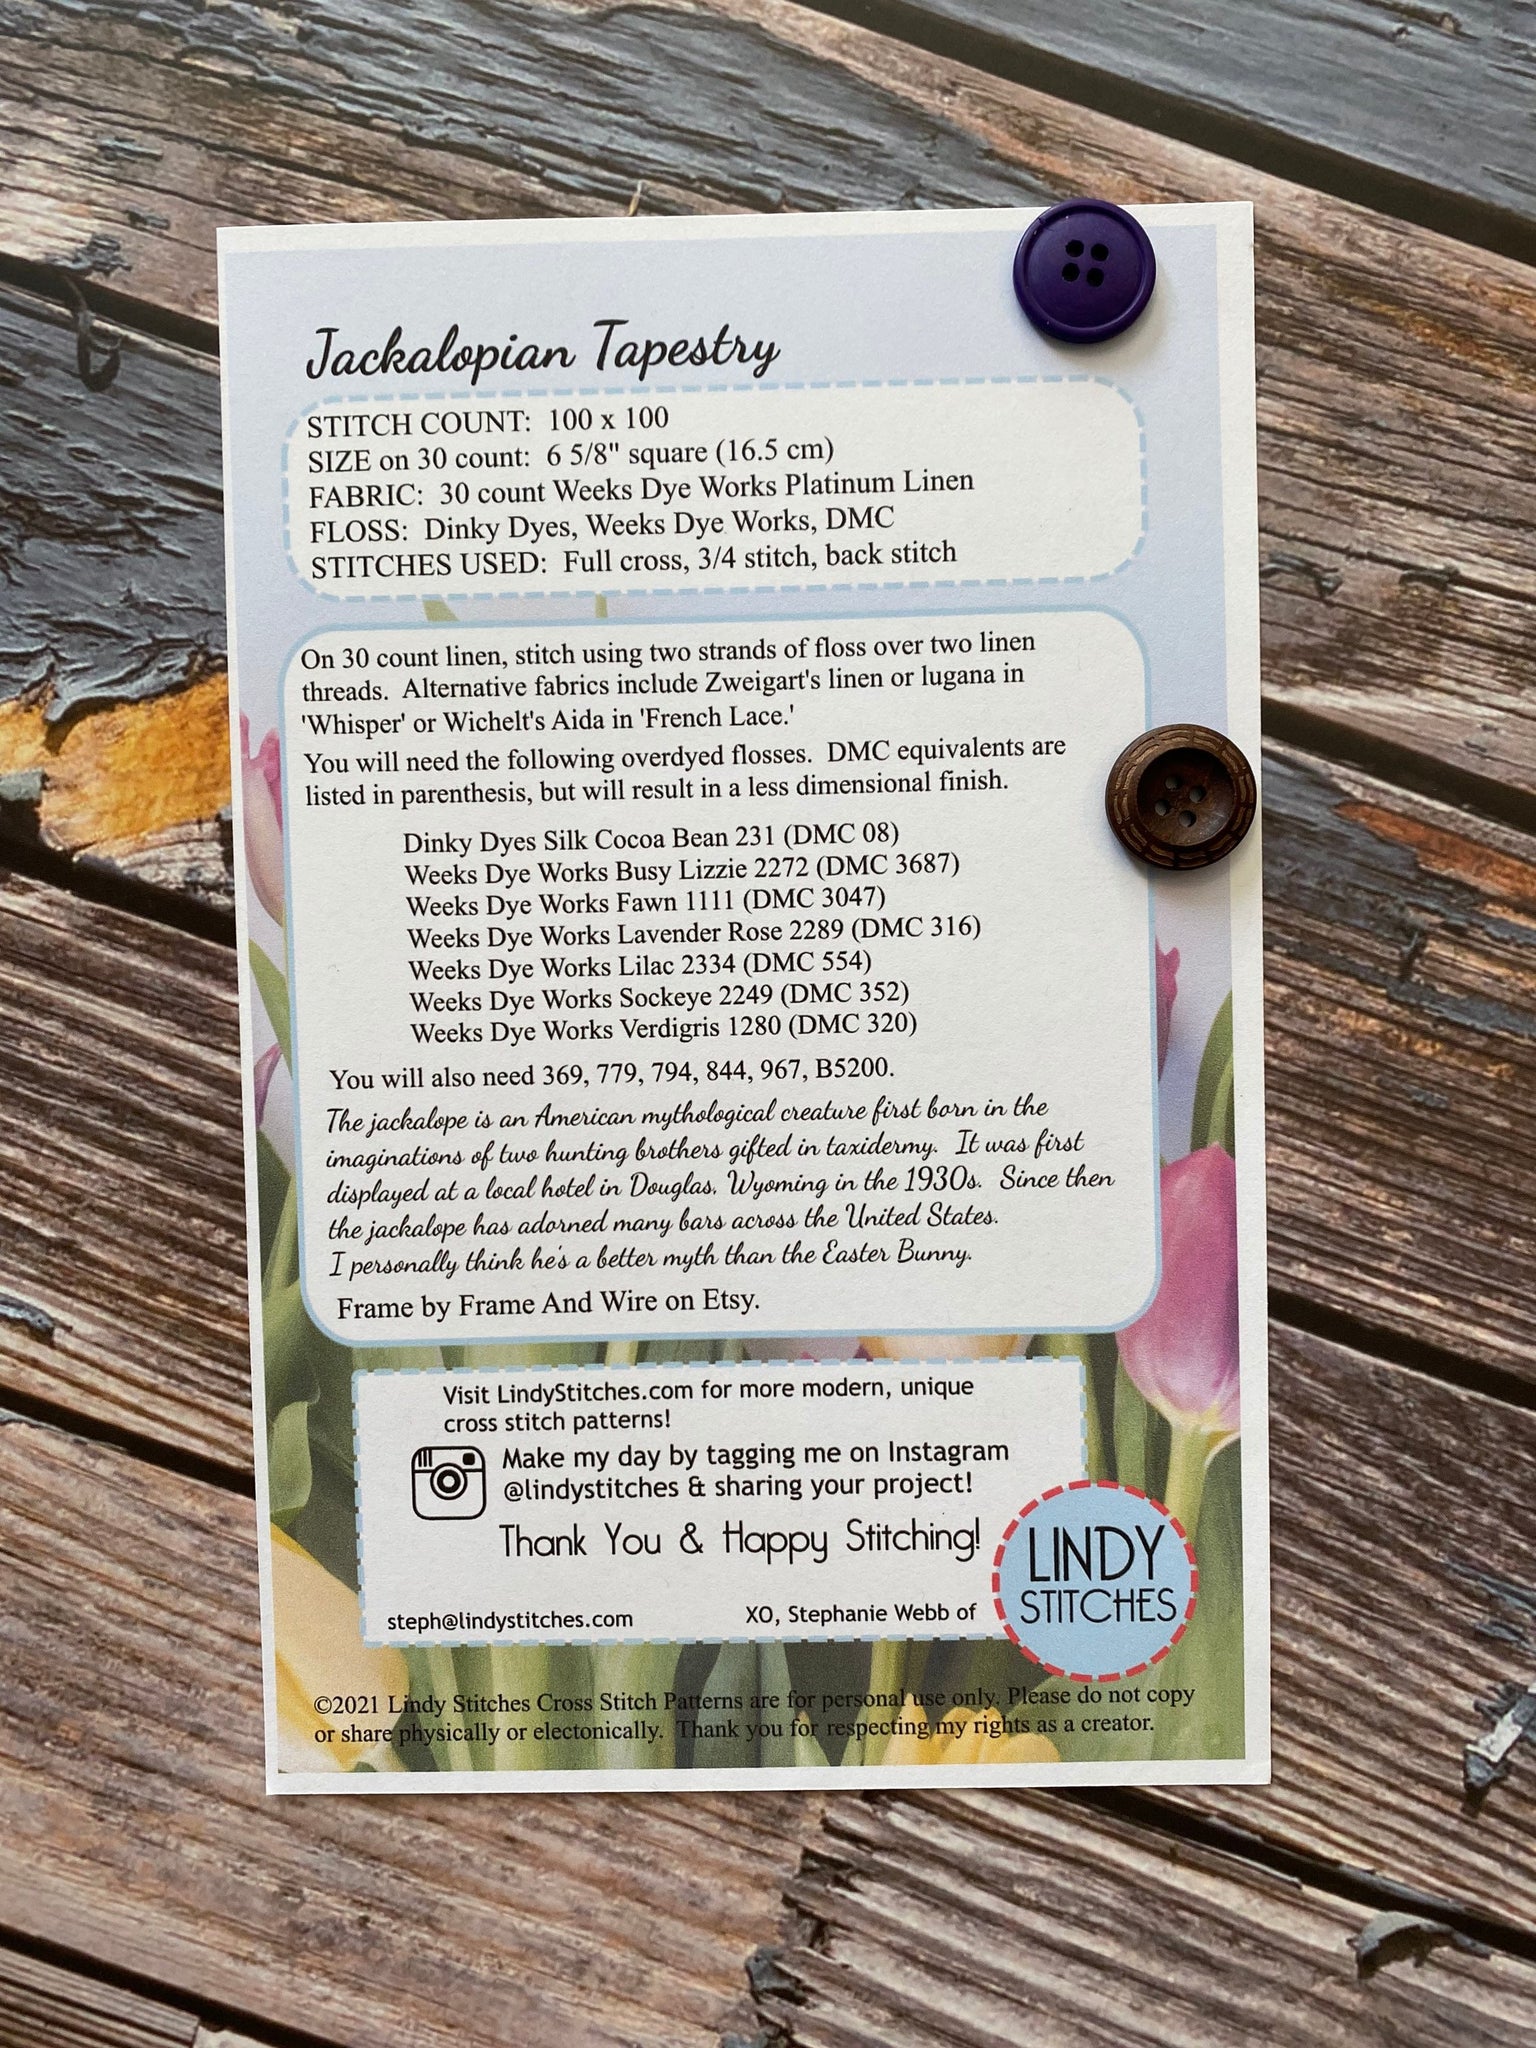 Jackalopian Tapestry
STITCH COUNT: 100 x 100
SIZE on 30 count: 6 5/8" square (16.5 cm)
FABRIC: 30 count Weeks Dye Works Platinum Linen
FLOSS: Dinky Dyes, Weeks Dye Works, DMC
STITCHES USED: Full cross, 3/4 stitch, back stitch
On 30 count linen, stitch using two strands of floss over two linen
threads. Alternative fabrics include Zweigart's linen or lugana in
'Whisper' or Wichelt's Aida in 'French Lace.'
You will need the following overdyed flosses. DMC equivalents are
listed in parenthesis, but will result in a less dimensional finish.
Dinky Dyes Silk Cocoa Bean 231 (DMC 08)
Weeks Dye Works Busy Lizzie 2272 (DMC 3687)
Weeks Dye Works Fawn 1111 (DMC 3047)
Weeks Dye Works Lavender Rose 2289 (DMC 316)
Weeks Dye Works Lilac 2334 (DMC 554)
Weeks Dye Works Sockeye 2249 (DMC 352)
Weeks Dye Works Verdigris 1280 (DMC 320)
You will also need 369, 779, 794, 844, 967, B5200.
The jackalope is an American mythological creature first born in the
imaginations of two hunting brothers gifted in taxidermy. It was first
displayed at a local hotel in Douglas, Wyoming in the 1930s. Since then
the jackalope has adorned many bars across the United States.
I personally think he's a better myth than the Easter Bunny.
Frame by Frame And Wire on Etsy.
Visit LindyStitches.com for more modern, unique
cross stitch patterns!
Make my day by tagging me on Instagram
@lindystitches & sharing your project!
Thank You & Happy Stitching!
steph@lindystitches.com XO, Stephanie Webb of
LINDY
STITCHES
©2021 Lindy Stitches Cross Stitch Patterns are for personal use only. Please do not copy
or share physically or electonically. Thank you for respecting my rights as a creator.